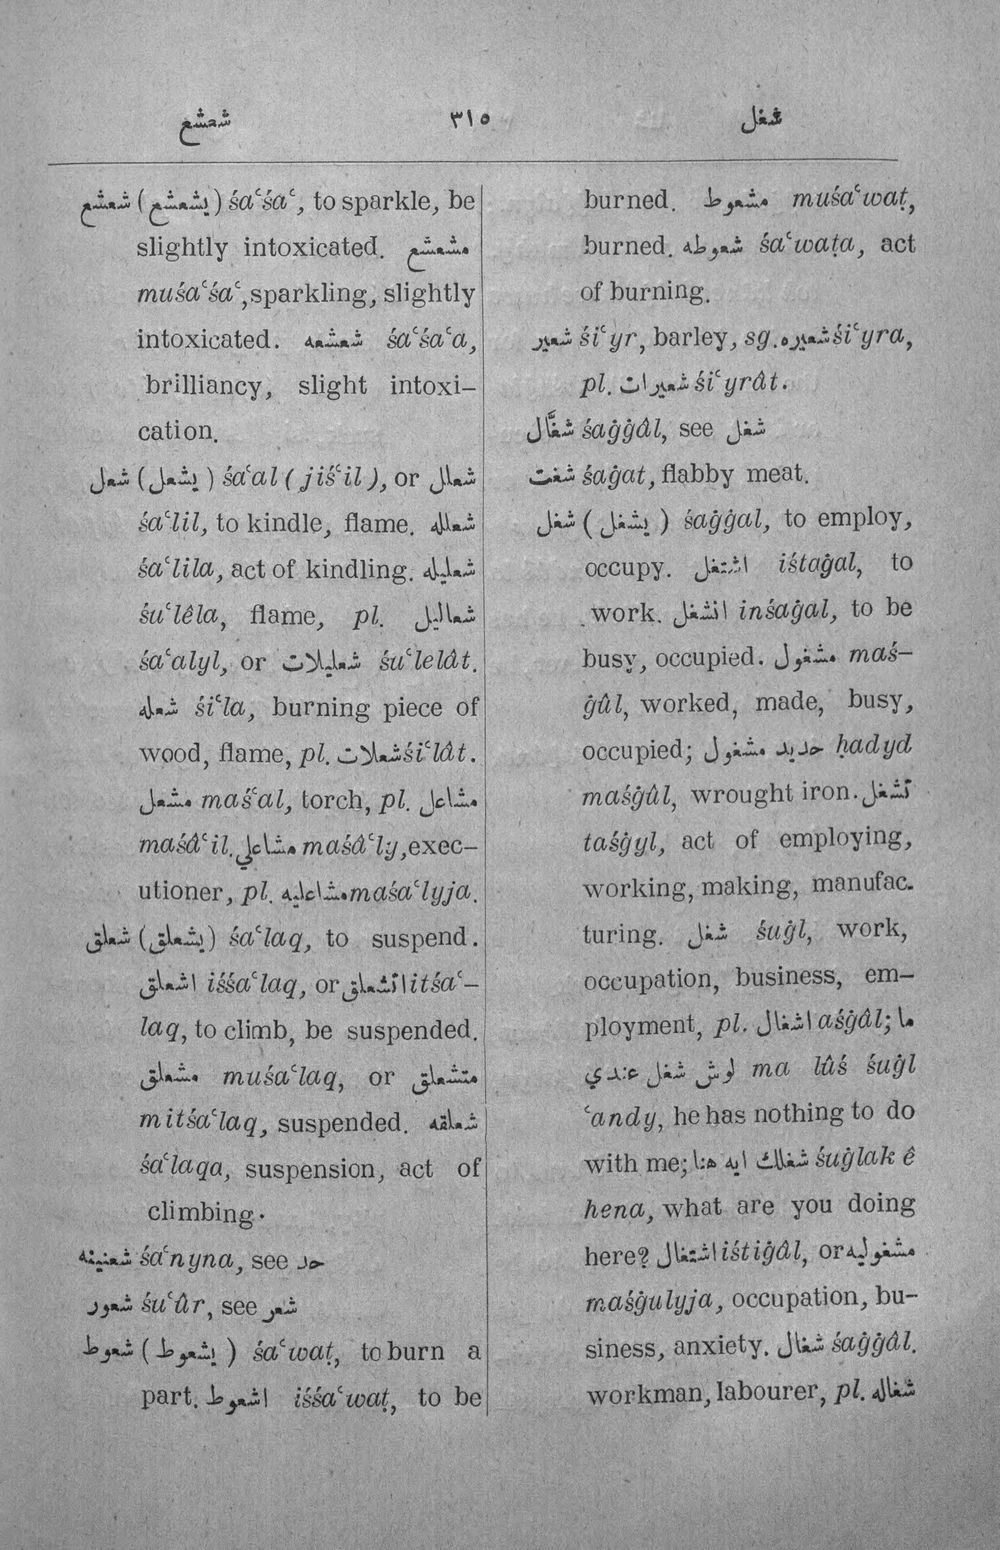 شعشع ٣١٥ شغل
شعشع (يشعشع) śaʿśaʿ, to sparkle, be
slightly intoxicated. مشعشع
muśaʿśaʿ, sparkling, slightly
intoxicated. شعشعه śaʿśaʿa,
brilliancy, slight intoxi-
cation.
شعل (يشعل) śaʿal (jiśʿil), or شعلل
śaʿlil, to kindle, flame. شعلله
śaʿlila, act of kindling. شعليله
śuʿlêla, flame, pl. شعاليل
śaʿalyl, or شعليلات śuʿlelât.
شعله śiʿla, burning piece of
wood, flame, pl. شعلات śiʿlât.
مشعل maśʿal, torch, pl. مشاعل
maśâʿil. مشاعلي maśâʿly, exec-
utioner, pl. مشاعليه maśaʿlyja.
شعلق (يشعلق) śaʿlaq, to suspend.
اشعلق iśśaʿlaq, or اتشعلق itśaʿ-
laq, to climb, be suspended.
مشعلق muśaʿlaq, or متشعلق
mitśaʿlaq, suspended. شعلقه
śaʿlaqa, suspension, act of
climbing.
شعنينه śaʿnyna, see حد
شعور śuʿûr, see شعر
شعوط (يشعوط) śaʿwaṭ, to burn a
part. اشعوط iśśaʿwaṭ, to be
burned. مشعوط muśaʿwaṭ,
burned. شعوطه śaʿwaṭa, act
of burning.
شعير śiʿyr, barley, sg. شعيره śiʿyra,
pl. شعيرات śiʿyrât.
شغَّال śaġġâl, see شغل
شغت śaġat, flabby meat.
شغل (يشغل) śaġġal, to employ,
occupy. اشتغل iśtaġal, to
work. انشغل inśaġal, to be
busy, occupied. مشغول maś-
ġûl, worked, made, busy,
occupied; حديد مشغول ḥadyd
maśġûl, wrought iron. تشغل
taśġyl, act of employing,
working, making, manufac-
turing. شغل śuġl, work,
occupation, business, em-
ployment, pl. اشغال aśġâl; ما
لوش شغل عندي ma lûś śuġl
ʿandy, he has nothing to do
with me; شغلك ايه هنا śuġlak ê
hena, what are you doing
here? اشتغال iśtiġâl, or مشغوليه
maśġulyja, occupation, bu-
siness, anxiety. شغال śaġġâl.
workman, labourer, pl. شغاله